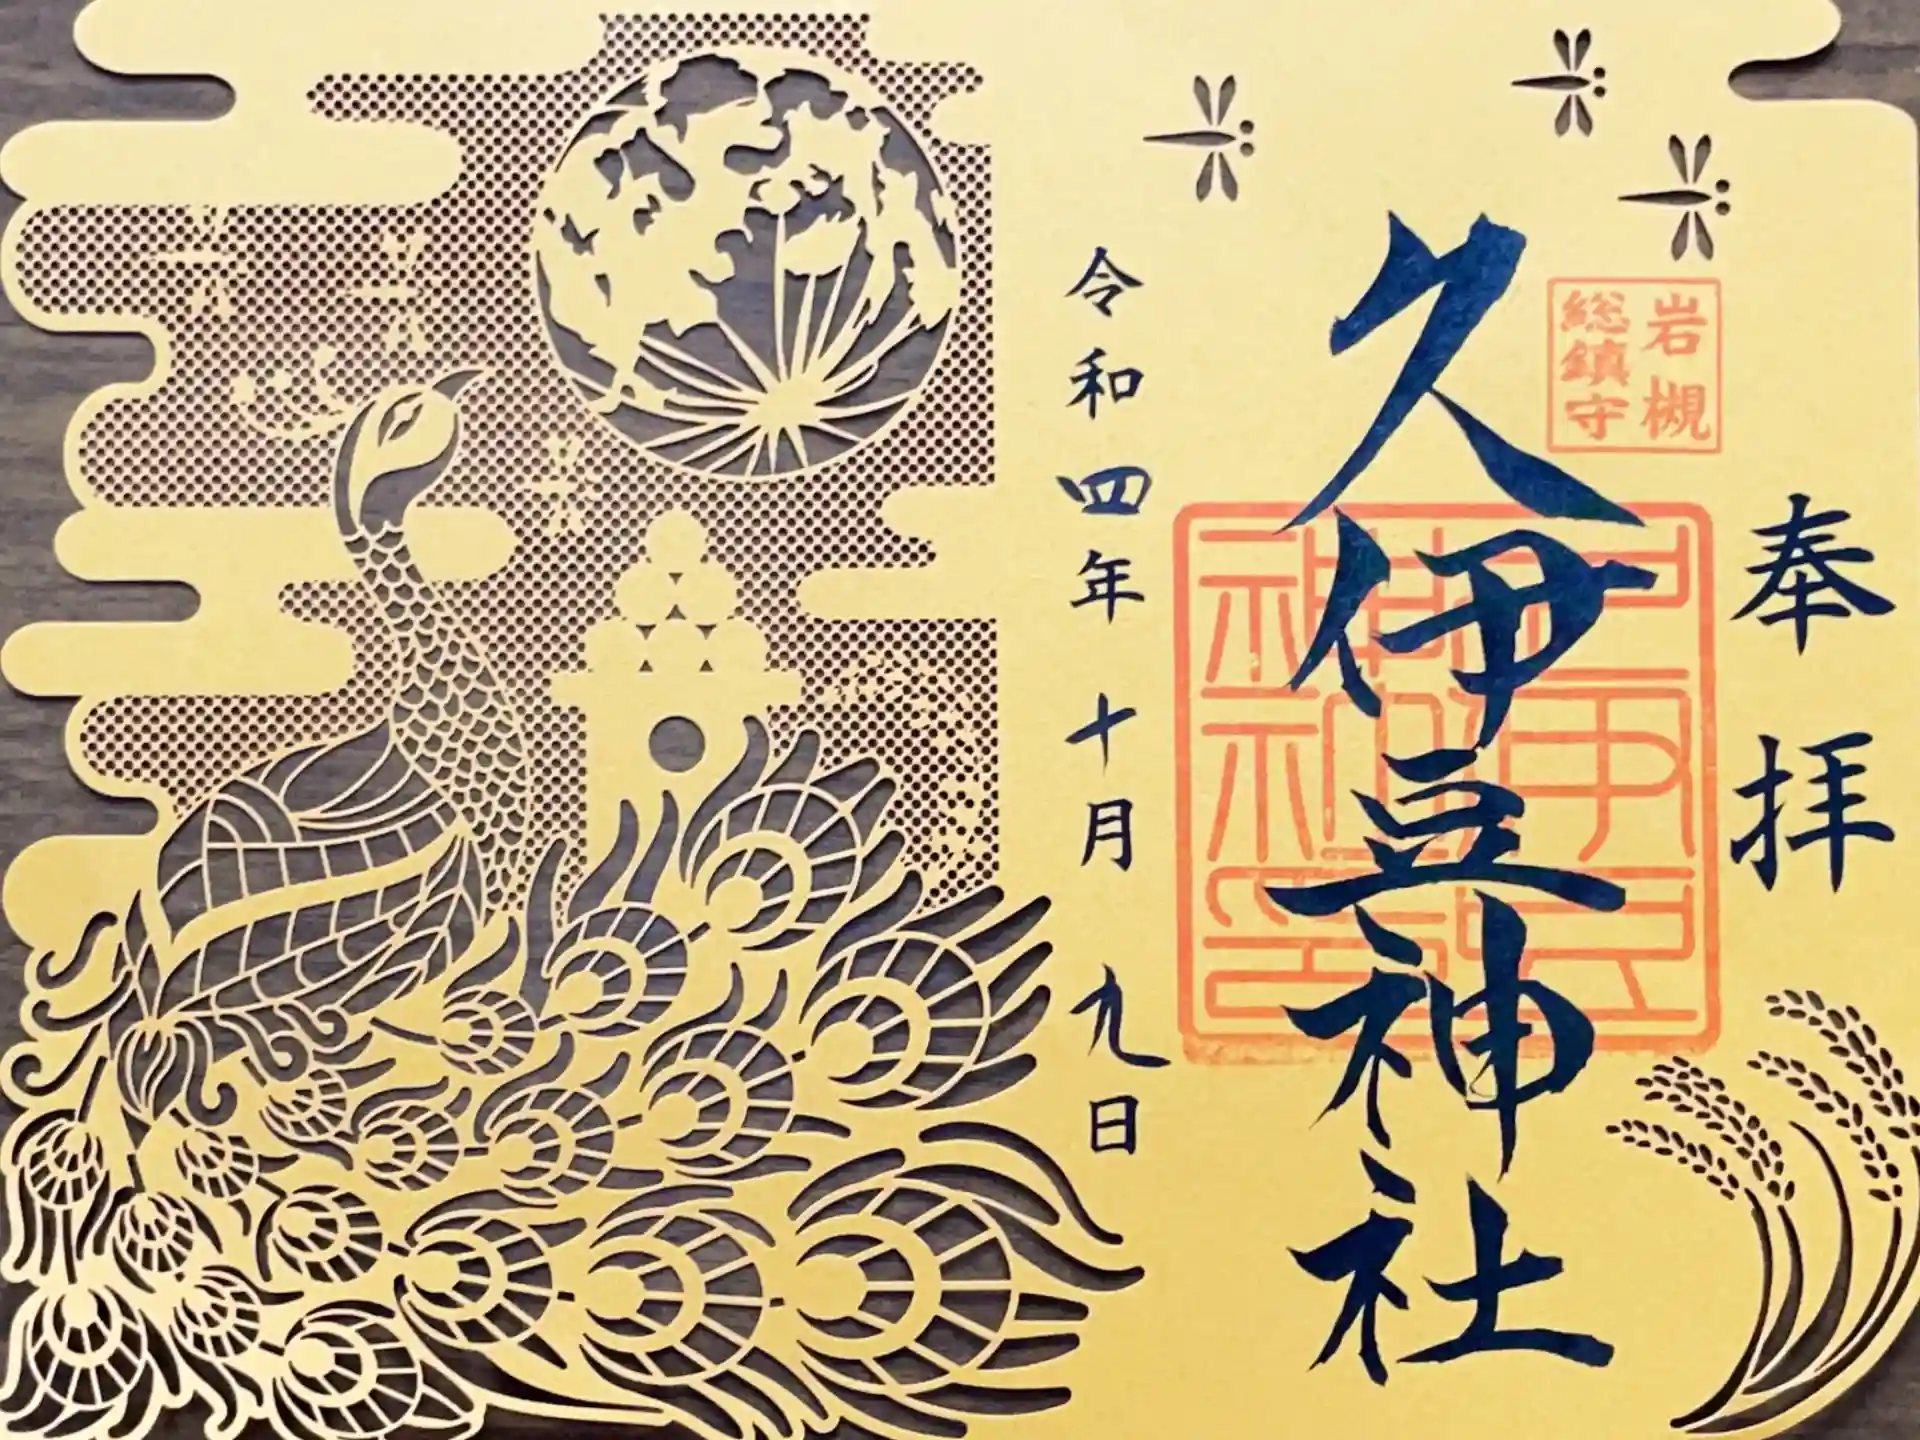 奉拝
岩槻
総鎮守
久伊豆神社
令和四年十月九日